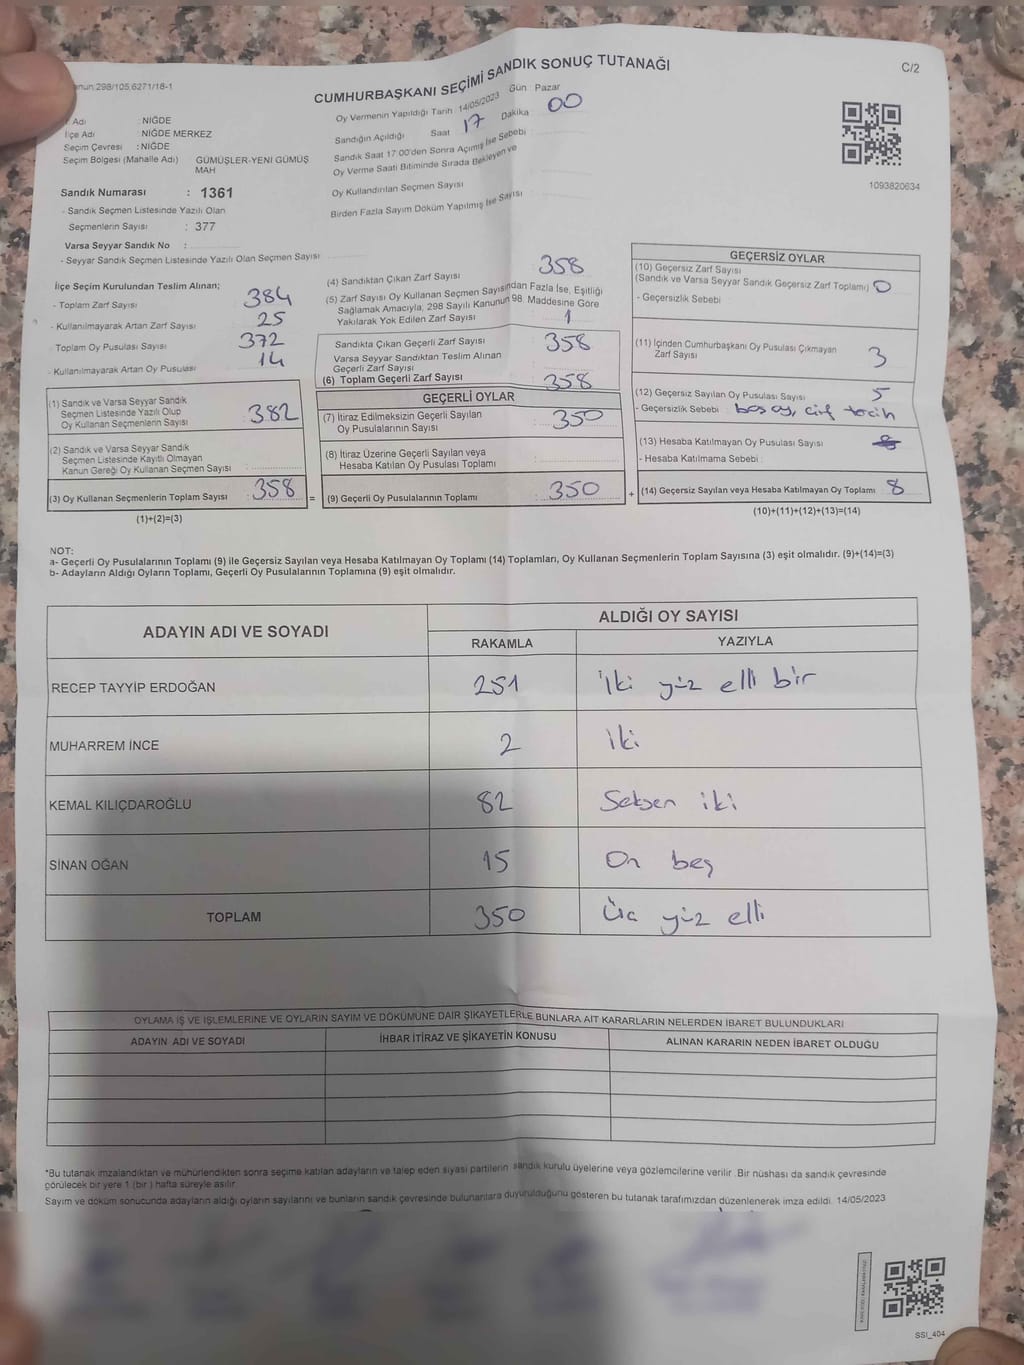 CUMHURBAŞKANI SEÇİMİ SANDIK SONUÇ TUTANAĞI
C/2
298/105,6271/18-1
Adı : NİĞDE
İlçe Adı : NİĞDE MERKEZ
Seçim Çevresi : NİĞDE
Seçim Bölgesi (Mahalle Adı) GÜMÜŞLER-YENİ GÜMÜŞ
MAH
Sandık Numarası : 1361
- Sandık Seçmen Listesinde Yazılı Olan
Seçmenlerin Sayısı : 377
Varsa Seyyar Sandık No :
- Seyyar Sandık Seçmen Listesinde Yazılı Olan Seçmen Sayısı
Oy Vermenin Yapıldığı Tarih 14/05/2023 Gün : Pazar
Sandığın Açıldığı Saat 17 Dakika 00
Sandık Saat 17:00'den Sonra Açımış İse Sebebi
Oy Verme Saati Bitiminde Sırada Bekleyen ve
Oy Kullandırılan Seçmen Sayısı
Birden Fazla Sayım Döküm Yapılmış İse Sayısı
1093820634
İlçe Seçim Kurulundan Teslim Alınan;
- Toplam Zarf Sayısı 384
- Kullanılmayarak Artan Zarf Sayısı 25
- Toplam Oy Pusulası Sayısı 372
- Kullanılmayarak Artan Oy Pusulası 14
(1) Sandık ve Varsa Seyyar Sandık
Seçmen Listesinde Yazılı Olup
Oy Kullanan Seçmenlerin Sayısı 382
(2) Sandık ve Varsa Seyyar Sandık
Seçmen Listesinde Kayıtlı Olmayan
Kanun Gereği Oy Kullanan Seçmen Sayısı
(3) Oy Kullanan Seçmenlerin Toplam Sayısı 358 =
(1)+(2)=(3)
(4) Sandıktan Çıkan Zarf Sayısı 358
(5) Zarf Sayısı Oy Kullanan Seçmen Sayısından Fazla İse, Eşitliği
Sağlamak Amacıyla, 298 Sayılı Kanunun 98. Maddesine Göre
Yakılarak Yok Edilen Zarf Sayısı 1
Sandıkta Çıkan Geçerli Zarf Sayısı 358
Varsa Seyyar Sandıktan Teslim Alınan
Geçerli Zarf Sayısı
(6) Toplam Geçerli Zarf Sayısı 358
GEÇERLİ OYLAR
(7) İtiraz Edilmeksizin Geçerli Sayılan
Oy Pusulalarının Sayısı 350
(8) İtiraz Üzerine Geçerli Sayılan veya
Hesaba Katılan Oy Pusulası Toplamı
(9) Geçerli Oy Pusulalarının Toplamı 350 +
GEÇERSİZ OYLAR
(10) Geçersiz Zarf Sayısı
(Sandık ve Varsa Seyyar Sandık Geçersiz Zarf Toplamı) 0
- Geçersizlik Sebebi
(11) İçinden Cumhurbaşkanı Oy Pusulası Çıkmayan
Zarf Sayısı 3
(12) Geçersiz Sayılan Oy Pusulası Sayısı 5
- Geçersizlik Sebebi : boş oy, çift tercih
(13) Hesaba Katılmayan Oy Pusulası Sayısı
- Hesaba Katılmama Sebebi
(14) Geçersiz Sayılan veya Hesaba Katılmayan Oy Toplamı 8
(10)+(11)+(12)+(13)=(14)
NOT:
a- Geçerli Oy Pusulalarının Toplamı (9) ile Geçersiz Sayılan veya Hesaba Katılmayan Oy Toplamı (14) Toplamları, Oy Kullanan Seçmenlerin Toplam Sayısına (3) eşit olmalıdır. (9)+(14)=(3)
b- Adayların Aldığı Oyların Toplamı, Geçerli Oy Pusulalarının Toplamına (9) eşit olmalıdır.
ADAYIN ADI VE SOYADI
ALDIĞI OY SAYISI
RAKAMLA YAZIYLA
RECEP TAYYİP ERDOĞAN 251 İki yüz elli bir
MUHARREM İNCE 2 İki
KEMAL KILIÇDAROĞLU 82 Seksen iki
SİNAN OĞAN 15 On beş
TOPLAM 350 Üç yüz elli
OYLAMA İŞ VE İŞLEMLERİNE VE OYLARIN SAYIM VE DÖKÜMÜNE DAİR ŞİKAYETLERLE BUNLARA AİT KARARLARIN NELERDEN İBARET BULUNDUKLARI
ADAYIN ADI VE SOYADI İHBAR İTİRAZ VE ŞİKAYETİN KONUSU ALINAN KARARIN NEDEN İBARET OLDUĞU
*Bu tutanak imzalandıktan ve mühürlendikten sonra seçime katılan adayların ve talep eden siyasi partilerin sandık kurulu üyelerine veya gözlemcilerine verilir. Bir nüshası da sandık çevresinde
görülecek bir yere 1 (bir ) hafta süreyle asılır.
Sayım ve döküm sonucunda adayların aldığı oyların sayılarını ve bunların sandık çevresinde bulunanlara duyurulduğunu gösteren bu tutanak tarafımızdan düzenlenerek imza edildi. 14/05/2023
SSI_404